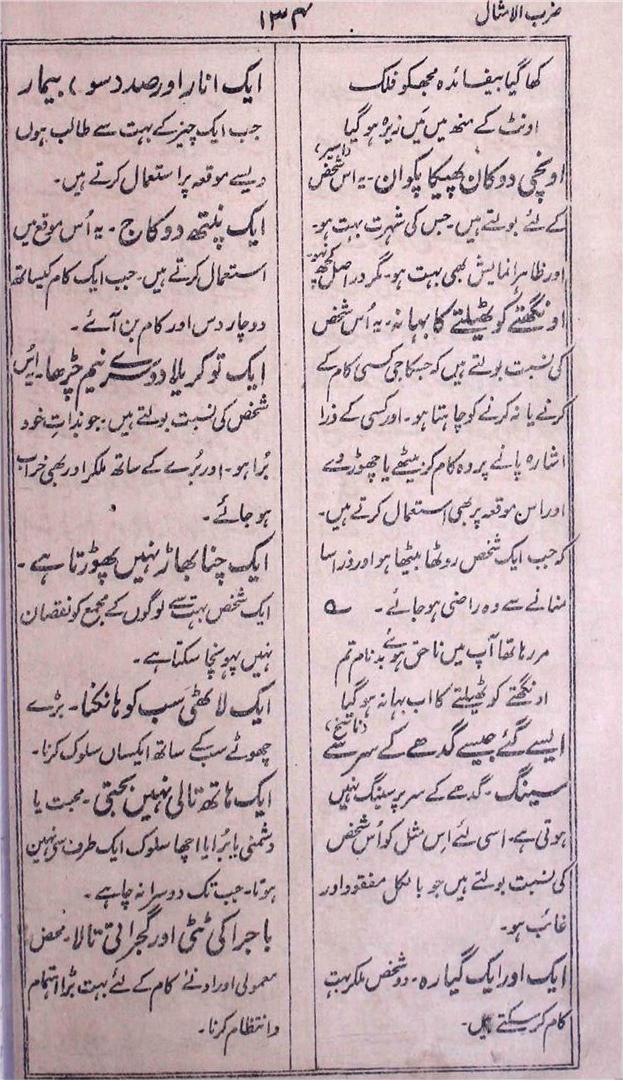 ضرب الامثال
۱۳۴
کھا گیا بیفائدہ مجھکو فلک
اونٹ کے منھ میں مَیں زیرہ ہو گیا
(اسیر)
اونچی دوکان پھیکا پکوان۔ یہ اس شخص
کے لئے بولتے ہیں۔ جس کی شہرت بہت ہو۔
اور ظاہرا نمایش بھی بہت ہو۔ مگر در اصل کچھ نہو
اونگھتے کو ٹھیلتے کا بہانہ۔ یہ اُس شخص
کی نسبت بولتے ہیں کہ جسکا جی کسی کام کے
کرنے یا نہ کرنے کو چاہتا ہو۔ اور کسی کے ذرا
اشارہ پانے پر وہ کام کر بیٹھے یا چھوڑ دے
اور اس موقعہ پر بھی استعمال کرتے ہیں۔
کہ جب ایک شخص روٹھا بیٹھا ہو اور ذرا سا
منانے سے وہ راضی ہو جائے۔
مر رہا تھا آپ میں ناحق ہوئے بدنام تم
اونگھتے کو ٹھیلتے کا اب بہانہ ہو گیا
(ناسخ)
ایسے گئے جیسے گدھے کے سر سے
سینگ۔ گدھے کے سر پر سینگ نہیں
ہوتی ہے۔ اسی لئے اِس مثل کو اُس شخص
کی نسبت بولتے ہیں جو بالکل مفقود اور
غائب ہو۔
ایک اور ایک گیارہ۔ دو شخص ملکر بہت
کام کر سکتے ہیں۔
ایک انار اور صد دسو) بیمار
جب ایک چیز کے بہت سے طالب ہوں
ویسے موقعہ پر استعمال کرتے ہیں۔
ایک پنتھ دو کاج۔ یہ اُس موقع میں
استعمال کرتے ہیں۔ جب ایک کام کیساتھ
دو چار دس اور کام بن آئے۔
ایک تو کریلا دوسرے نیم چڑھا۔ اُس
شخص کی نسبت بولتے ہیں۔ جو بذاتِ خود
بُرا ہو۔ اور بُرے کے ساتھ ملکر اور بھی خراب
ہو جائے۔
ایک چنا بھاڑ نہیں پھوڑتا ہے۔
ایک شخص بہت سے لوگوں کے مجمع کو نقصان
نہیں پہونچا سکتا ہے۔
ایک لاٹھی سب کو ہانکنا۔ بڑے
چھوٹے سب کے ساتھ ایکساں سلوک کرنا۔
ایک ہاتھ تالی نہیں بجتی۔ محبت یا
دشمنی یا بُرا یا اچھا سلوک ایک طرف سی نہین
ہوتا۔ جب تک دوسرا نہ چاہے۔
باجرا کی ٹٹی اور گجراتی تالا۔ محض
معمولی اور ادنےٰ کام کے لئے بہت بڑا اہتمام
و انتظام کرنا۔